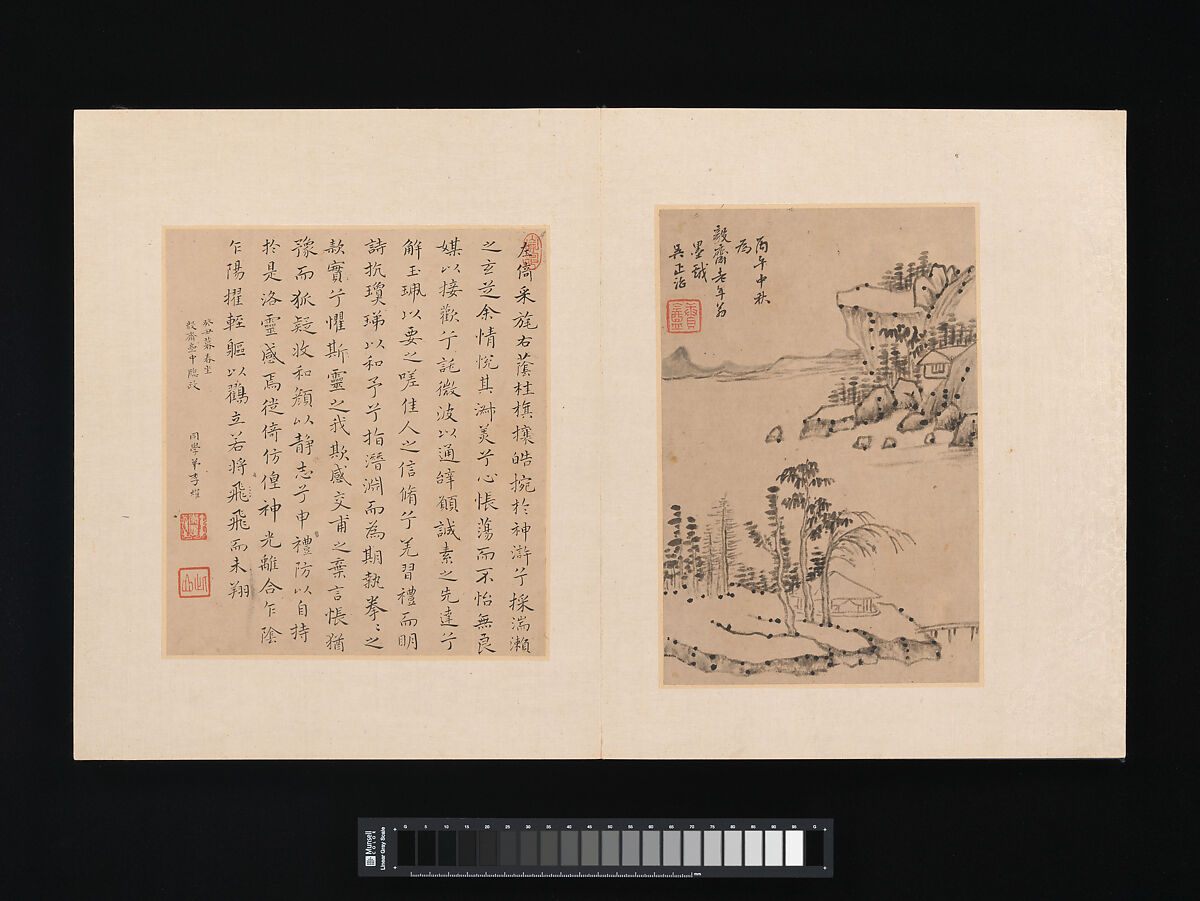 丙午中秋
為
毅齋老年翁
墨戲
吳正治
左倚采旄右蔭桂旗攘皓捥於神滸兮採湍瀨
之玄芝余情悅其淑美兮心悵蕩而不怡無良
媒以接歡兮託微波以通辭願誠素之先達兮
解玉珮以要之嗟佳人之信脩兮羌習禮而明
詩抗瓊珶以和予兮指潛淵而為期執拳〻之
款實兮懼斯靈之我欺感交甫之棄言悵猶
豫而狐疑收和顏以靜志兮申禮防以自持
於是洛靈感焉徙倚仿偟神光離合乍陰
乍陽擢輕軀以鶴立若將飛飛而未翔
癸丑暮春坐
毅齋
中臨政
同學弟李
Munsell
COLOR
Linear Gray Scale
G 5 10 15 20 25 30 35 40 45 50 55 60 65 70 75 80 85 90 95 G
mm